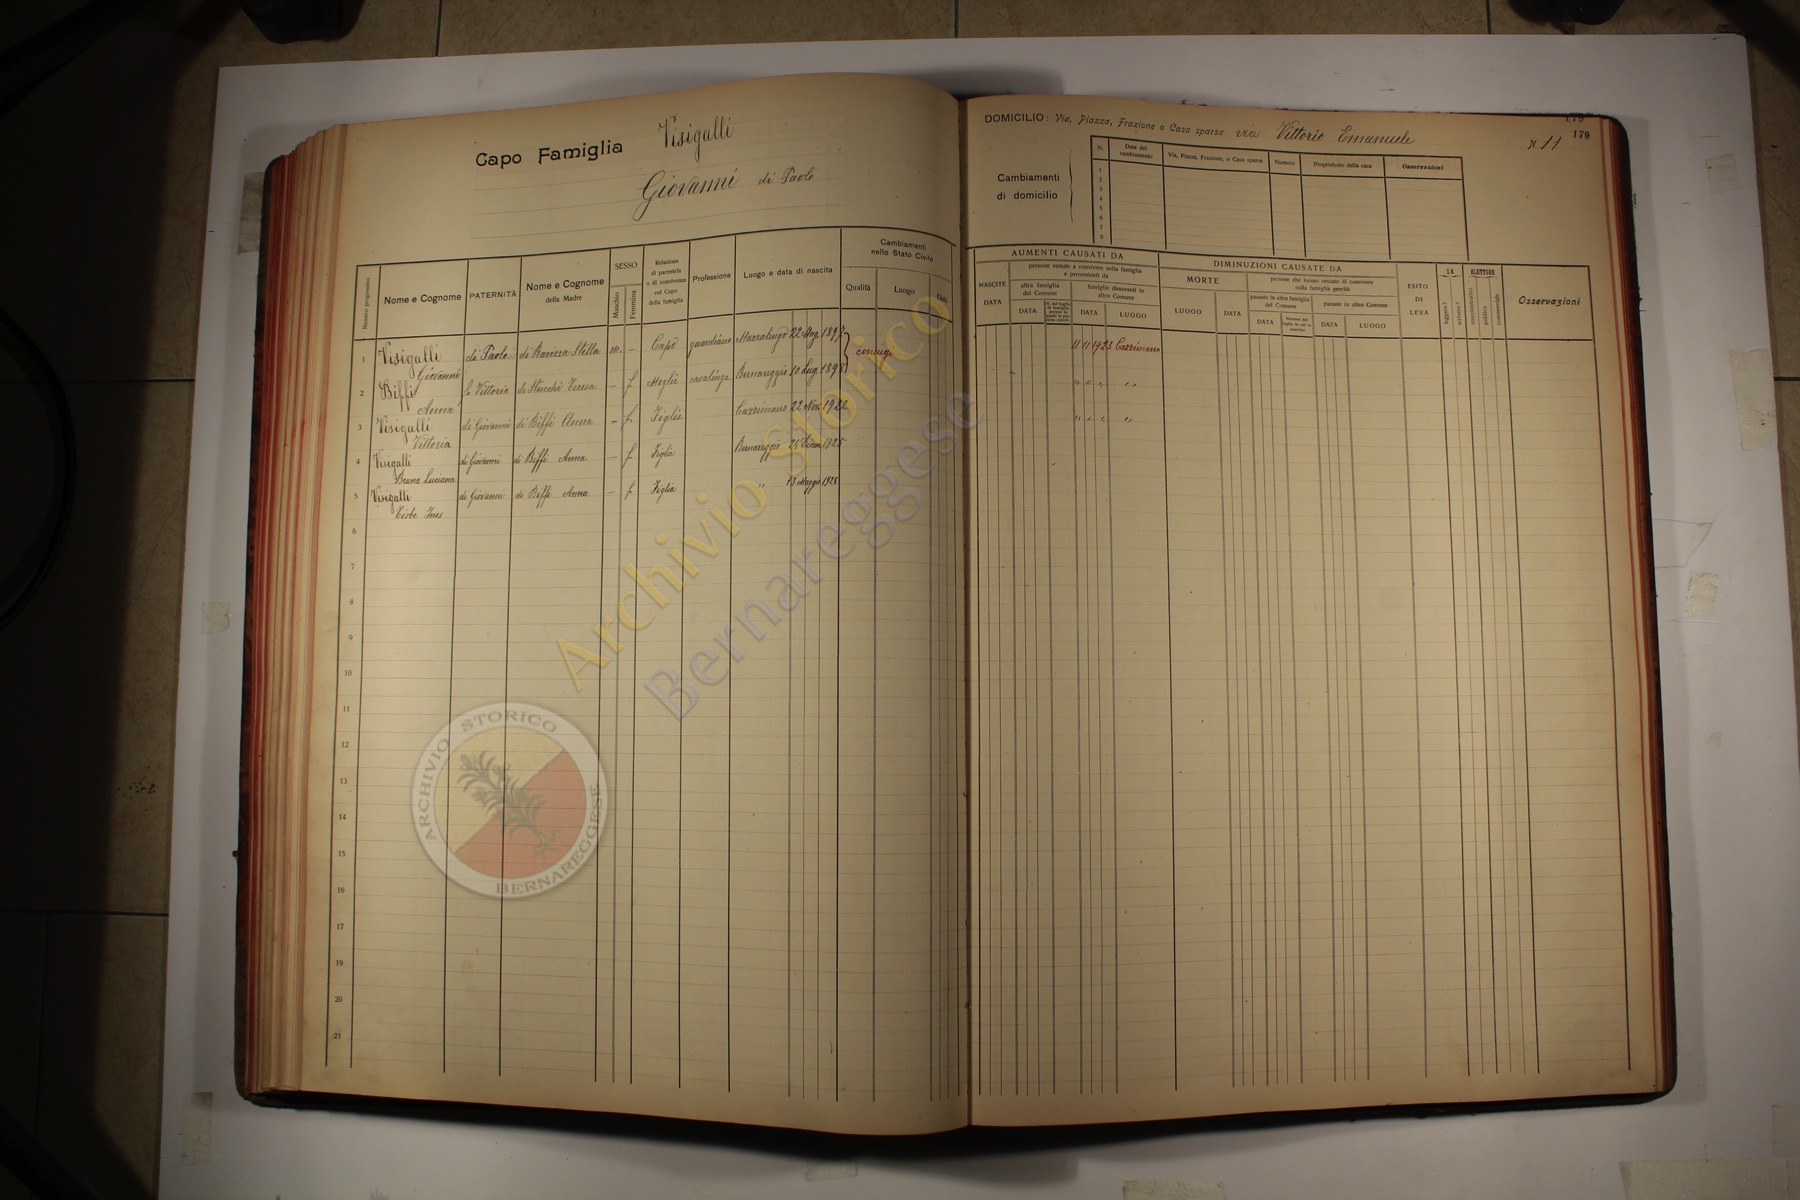 Capo Famiglia Visigalli
Giovanni di Paolo
Numero progressivo
Nome e Cognome
PATERNITÀ
Nome e Cognome
della Madre
SESSO
Maschio
Femmina
Relazione
di parentela
o di convivenza
col Capo
della famiglia
Professione
Luogo e data di nascita
Cambiamenti
nello Stato Civile
Qualità
Luogo
Data
1 Visigalli di Paolo di Stella m. - Capo guardiano 22 Mag. 1897 coniugi
Giovanni
2 Biffi fu Vittorio di Stucchi Teresa - f. Moglie casalinga Bernareggio 10 Lug. 1898
Anna
3 Visigalli di Giovanni di Biffi Anna - f. Figlia 22 Nov. 1922
Vittoria
4 Visigalli di Giovanni di Biffi Anna - f. Figlia Bernareggio 1925
Bruna Luciana
5 Visigalli di Giovanni di Biffi Anna - f. Figlia " 13 Maggio 1928
Tisbe Ines
6
7
8
9
10
11
12
13
14
15
16
17
18
19
20
21
DOMICILIO: Via, Piazza, Frazione o Casa sparsa via Vittorio Emanuele N 11
179
179
Cambiamenti
di domicilio
N.
Data del
cambiamento
Via, Piazza, Frazione, o Casa sparsa
Numero
Proprietario della casa
Osservazioni
1
2
3
4
5
6
7
8
AUMENTI CAUSATI DA
NASCITE
DATA
persone venute a convivere nella famiglia
e provenienti da
altra famiglia
del Comune
DATA
famiglie dimoranti in
altro Comune
DATA
LUOGO
DIMINUZIONI CAUSATE DA
MORTE
LUOGO
DATA
persone che hanno cessato di convivere
colla famiglia perchè
passate in altra famiglia
del Comune
DATA
passate in altro Comune
DATA
LUOGO
ESITO
DI
LEVA
SA
leggere?
scrivere?
ELETTORE
amministrativo
politico
commerciale
Osservazioni
11 11 1923
" " " "
" " " "
Archivio Storico
Bernareggese
ARCHIVIO STORICO
BERNAREGGESE